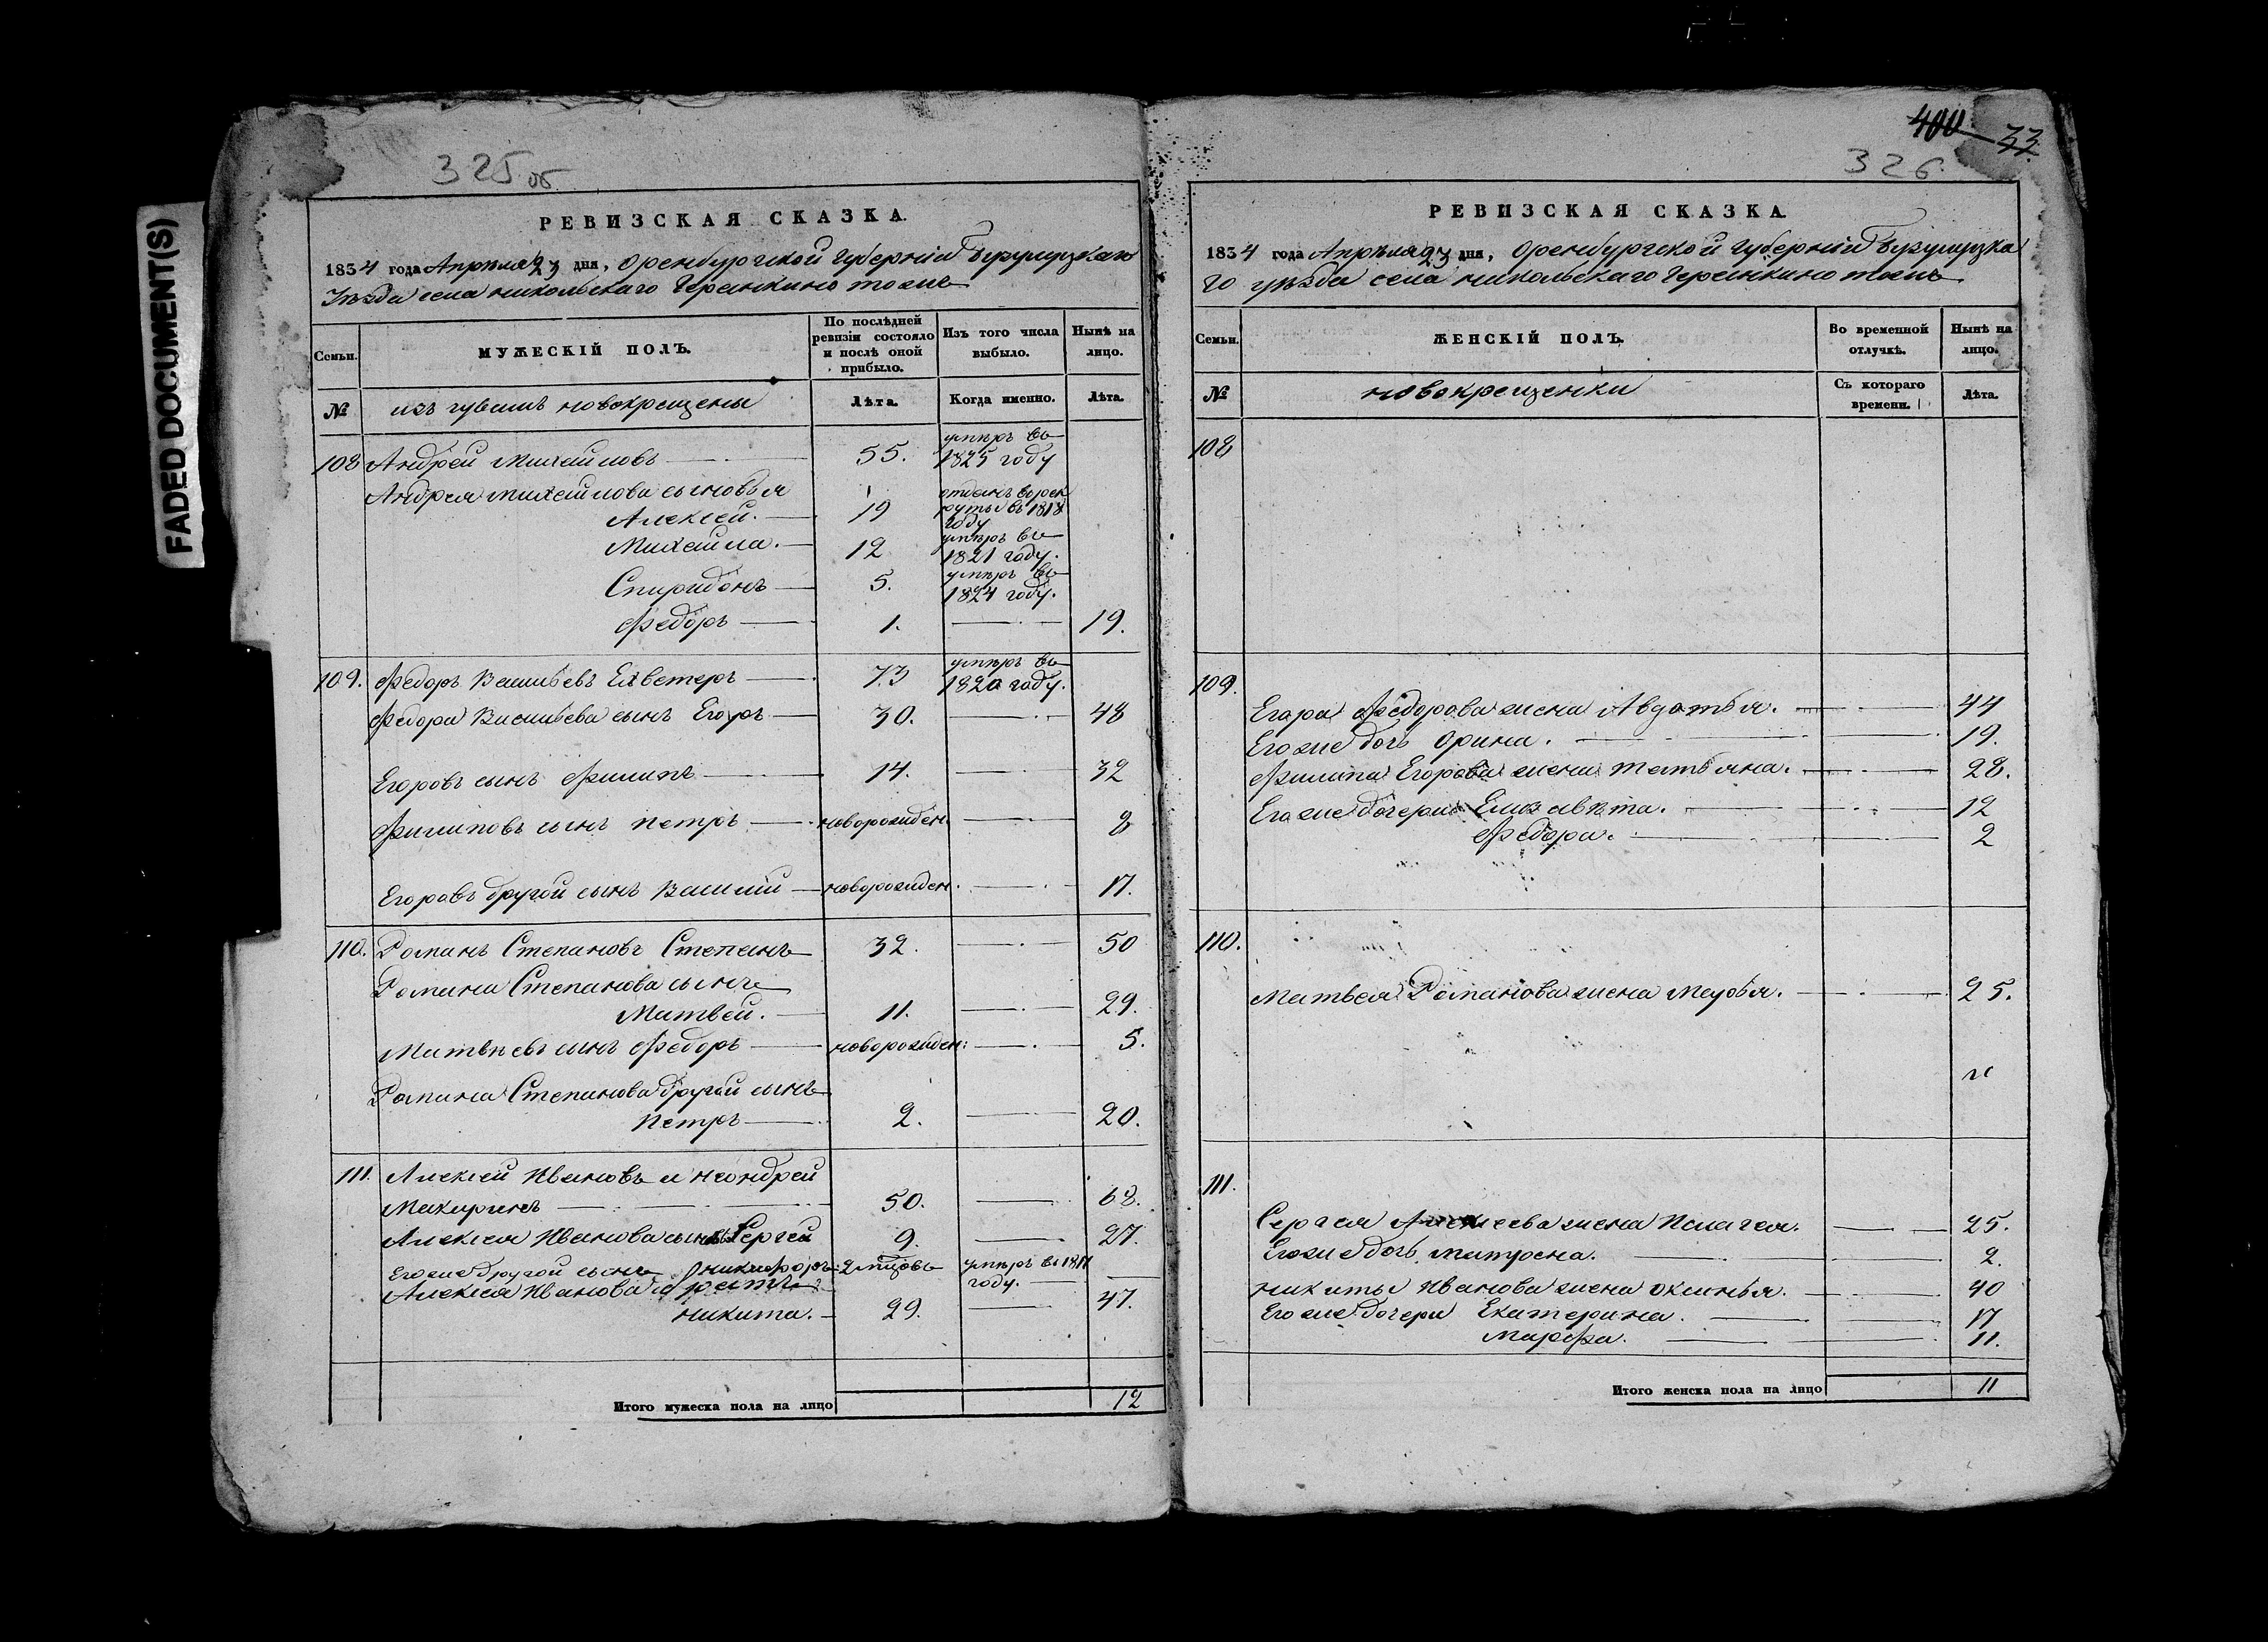 FADED DOCUMENT(S)
325 об
РЕВИЗСКАЯ СКАЗКА.
1834 года Апреля 23 дня, Оренбургской Губерніи Бугурузскаго
Уезда села Никольскаго Черинкино тожъ
Семьи. МУЖЕСКІЙ ПОЛЪ. По послѣдней ревизіи состояло и послѣ оной прибыло. Изъ того числа выбыло. Нынѣ на лицо.
№ изъ чувашъ новокрещены Лѣта. Когда именно. Лѣта.
108 Андрей Михайловъ 55. умиръ въ 1825 году
Андрея Михайлова сыновья
Алексей. 19 отданъ въ рекруты въ 1818 году
Михайла. 12 умиръ въ 1821 году.
Спиридонъ 5. умиръ въ 1824 году.
Федоръ 1. 19.
109. Федоръ Васильевъ 73 умиръ въ 1820 году.
Федора Васильева сынъ Егоръ 30. 48
Егоровъ сынъ Филипъ 14. 32
Филиповъ сынъ Петръ новорожден. 8
Егоровъ другой сынъ Василий новорожден. 17.
110. Романъ Степановъ Степанъ 32. 50
Романа Степанова сынъ
Матвей. 11. 29.
Матвеевъ сынъ Федоръ новорожден: 5.
Романа Степанова другой сынъ
Петръ 2. 20.
111. Алексей Ивановъ
50. 68.
Алексея Иванова сынъ Сергей 9. 27.
Егоже другой сынъ Никифоръ 2 мцовъ умиръ въ 1817 году.
Алексея Иванова братъ
Никита. 29. 47.
Итого мужеска пола на лицо 12
400 33
326
РЕВИЗСКАЯ СКАЗКА.
1834 года Апреля 23 дня, Оренбургской Губерніи Бугурузска
го уезда села Никольскаго Черинкино тожъ
Семьи. ЖЕНСКІЙ ПОЛЪ. Во временной отлучкѣ. Нынѣ на лицо.
№ новокрещенки Съ котораго времени. Лѣта.
108
109.
Егара Федорова жена Авдотья. 44
Егоже дочь Орина. 19.
Филипа Егорова жена Татьяна. 28.
Егоже дочери Елизавета. 12
Федора. 2
110.
Матвея Романова жена Марья. 25.
111.
Сергея Алексеева жена Пелагея. 25.
Егоже дочь Матрена. 2.
Никиты Иванова жена Оксинья. 40
Егоже дочери Екатерина. 17
Марфа. 11.
Итого женска пола на лицо 11